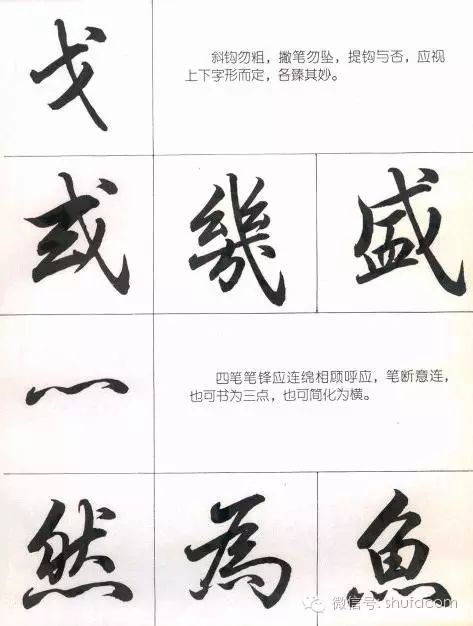 戈
斜钩勿粗，撇笔勿坠，提钩与否，应视
上下字形而定，各臻其妙。
或 幾 盛
灬
四笔笔锋应连绵相顾呼应，笔断意连，
也可书为三点，也可简化为横。
然 為 魚
微信号: shufdcom